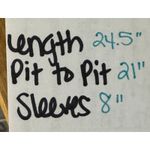 Length 24.5"
Pit to Pit 21"
Sleeves 8"